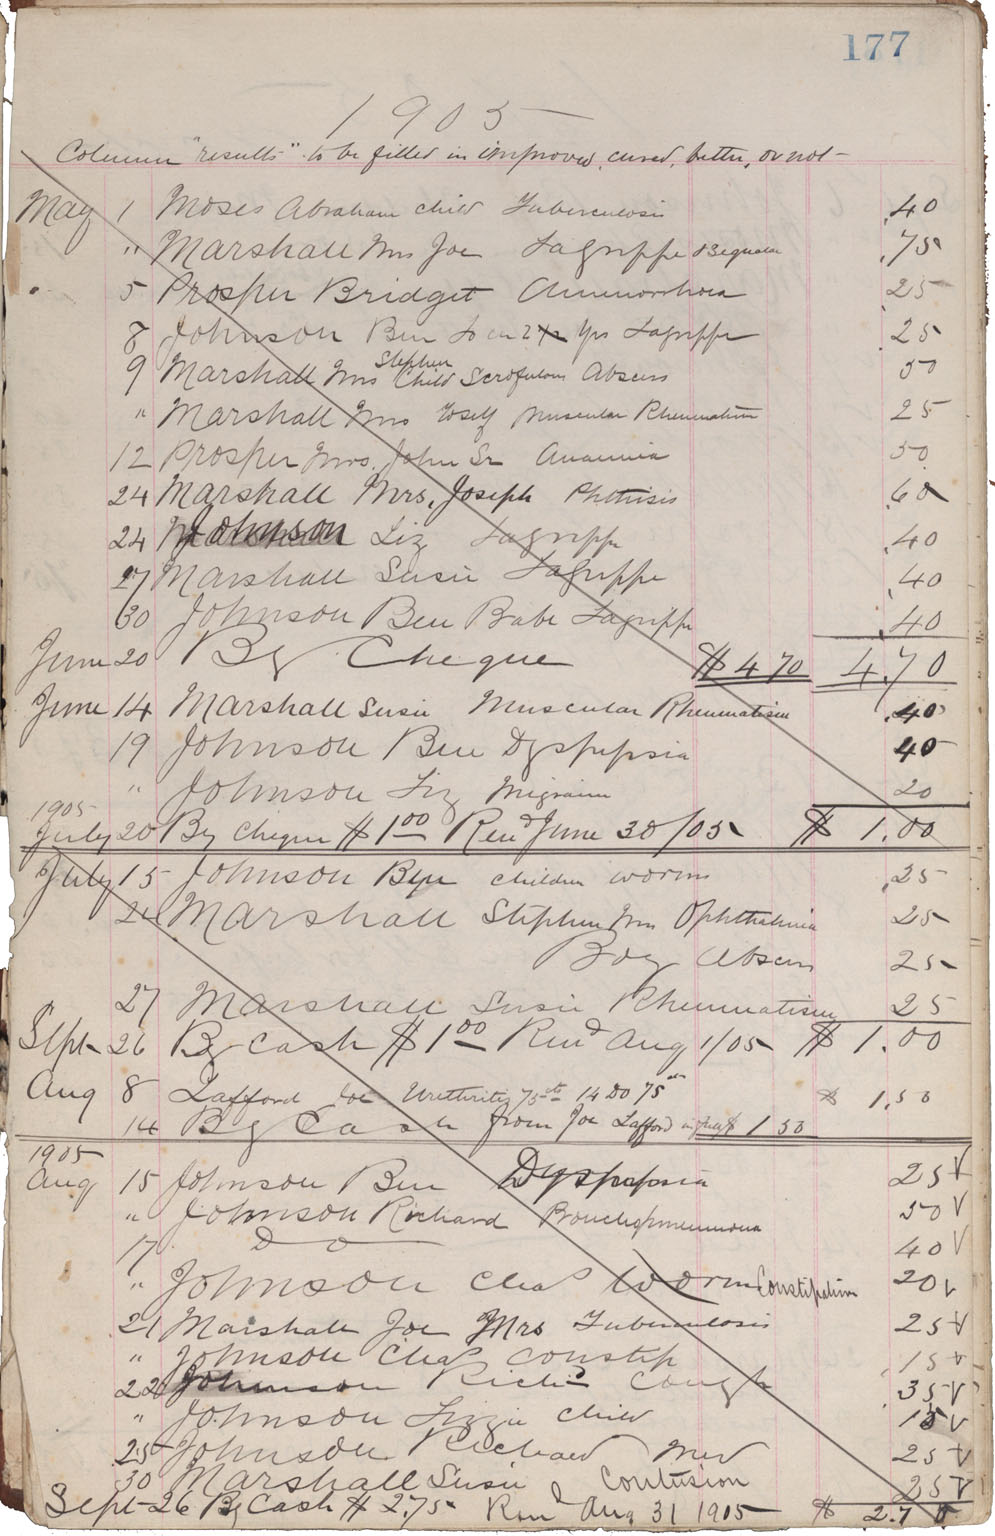 177
1905
Column "results" to be filled in improved, cured, better, or not
May 1 Moses Abraham child Tuberculosis .40
" Marshall Mrs Joe Lagrippe .75
5 Prosper Bridget Amenorrhoea 25
8 Johnson Ben Yrs Lagrippe 25
9 Marshall Mrs Stephen Child Scrofulous Abscess 50
" Marshall Mrs Muscular Rheumatism 25
12 Prosper Mrs. John Sr Anaemia 50
24 Marshall Mrs. Joseph Phthisis .60
24 Johnson Liz Lagrippe .40
27 Marshall Susie Lagrippe .40
30 Johnson Ben Babe Lagrippe .40
June 20 By Cheque $4 70 4.70
June 14 Marshall Susie Muscular Rheumatism .40
19 Johnson Ben Dyspepsia 40
" Johnson Liz Migraine 20
1905
July 20 By cheque $1 00 Rend June 30/05 $ 1.00
July 15 Johnson Ben children worms .25
Marshall Stephen Mrs Ophthalmia 25
Boy Abscess 25
27 Marshall Susie Rheumatism 25
Sept 26 By Cash $1 00 Rend Aug 1/05 $ 1.00
Aug 8 Lafford Joe Urethritis 75 cts 14 Do 75 cts $ 1.50
14 By Cash from Joe Lafford $ 1 50
1905
Aug 15 Johnson Ben Dyspepsia 25 √
" Johnson Richard Bronchopneumonia 50 √
17 D o 40 √
" Johnson Chas Worms Constipation 20 √
21 Marshall Joe Mrs Tuberculosis 25 √
" Johnson Chas constip .15 √
22 Johnson Richd Cough .35 √
" Johnson Lizzie child 15 √
25 Johnson Richard Med 25 √
30 Marshall Susie Contusion 25 √
Sept 26 By Cash $ 2.75 Rend Aug 31 1905 $ 2.70